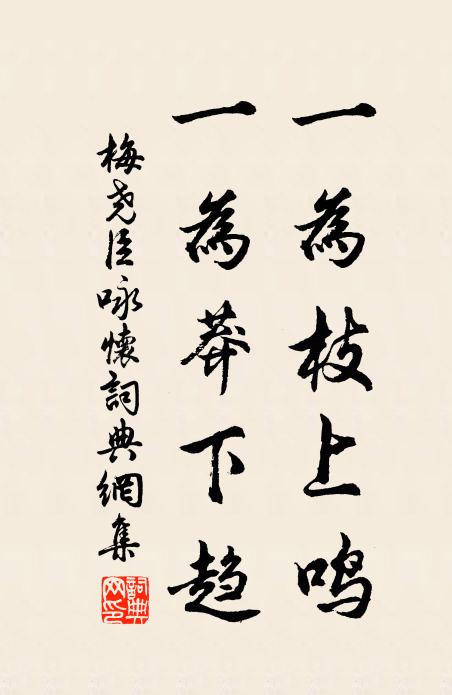 一為枝上鸣
一為莽下趋
梅尧臣咏懷詞典網集
詞典网印